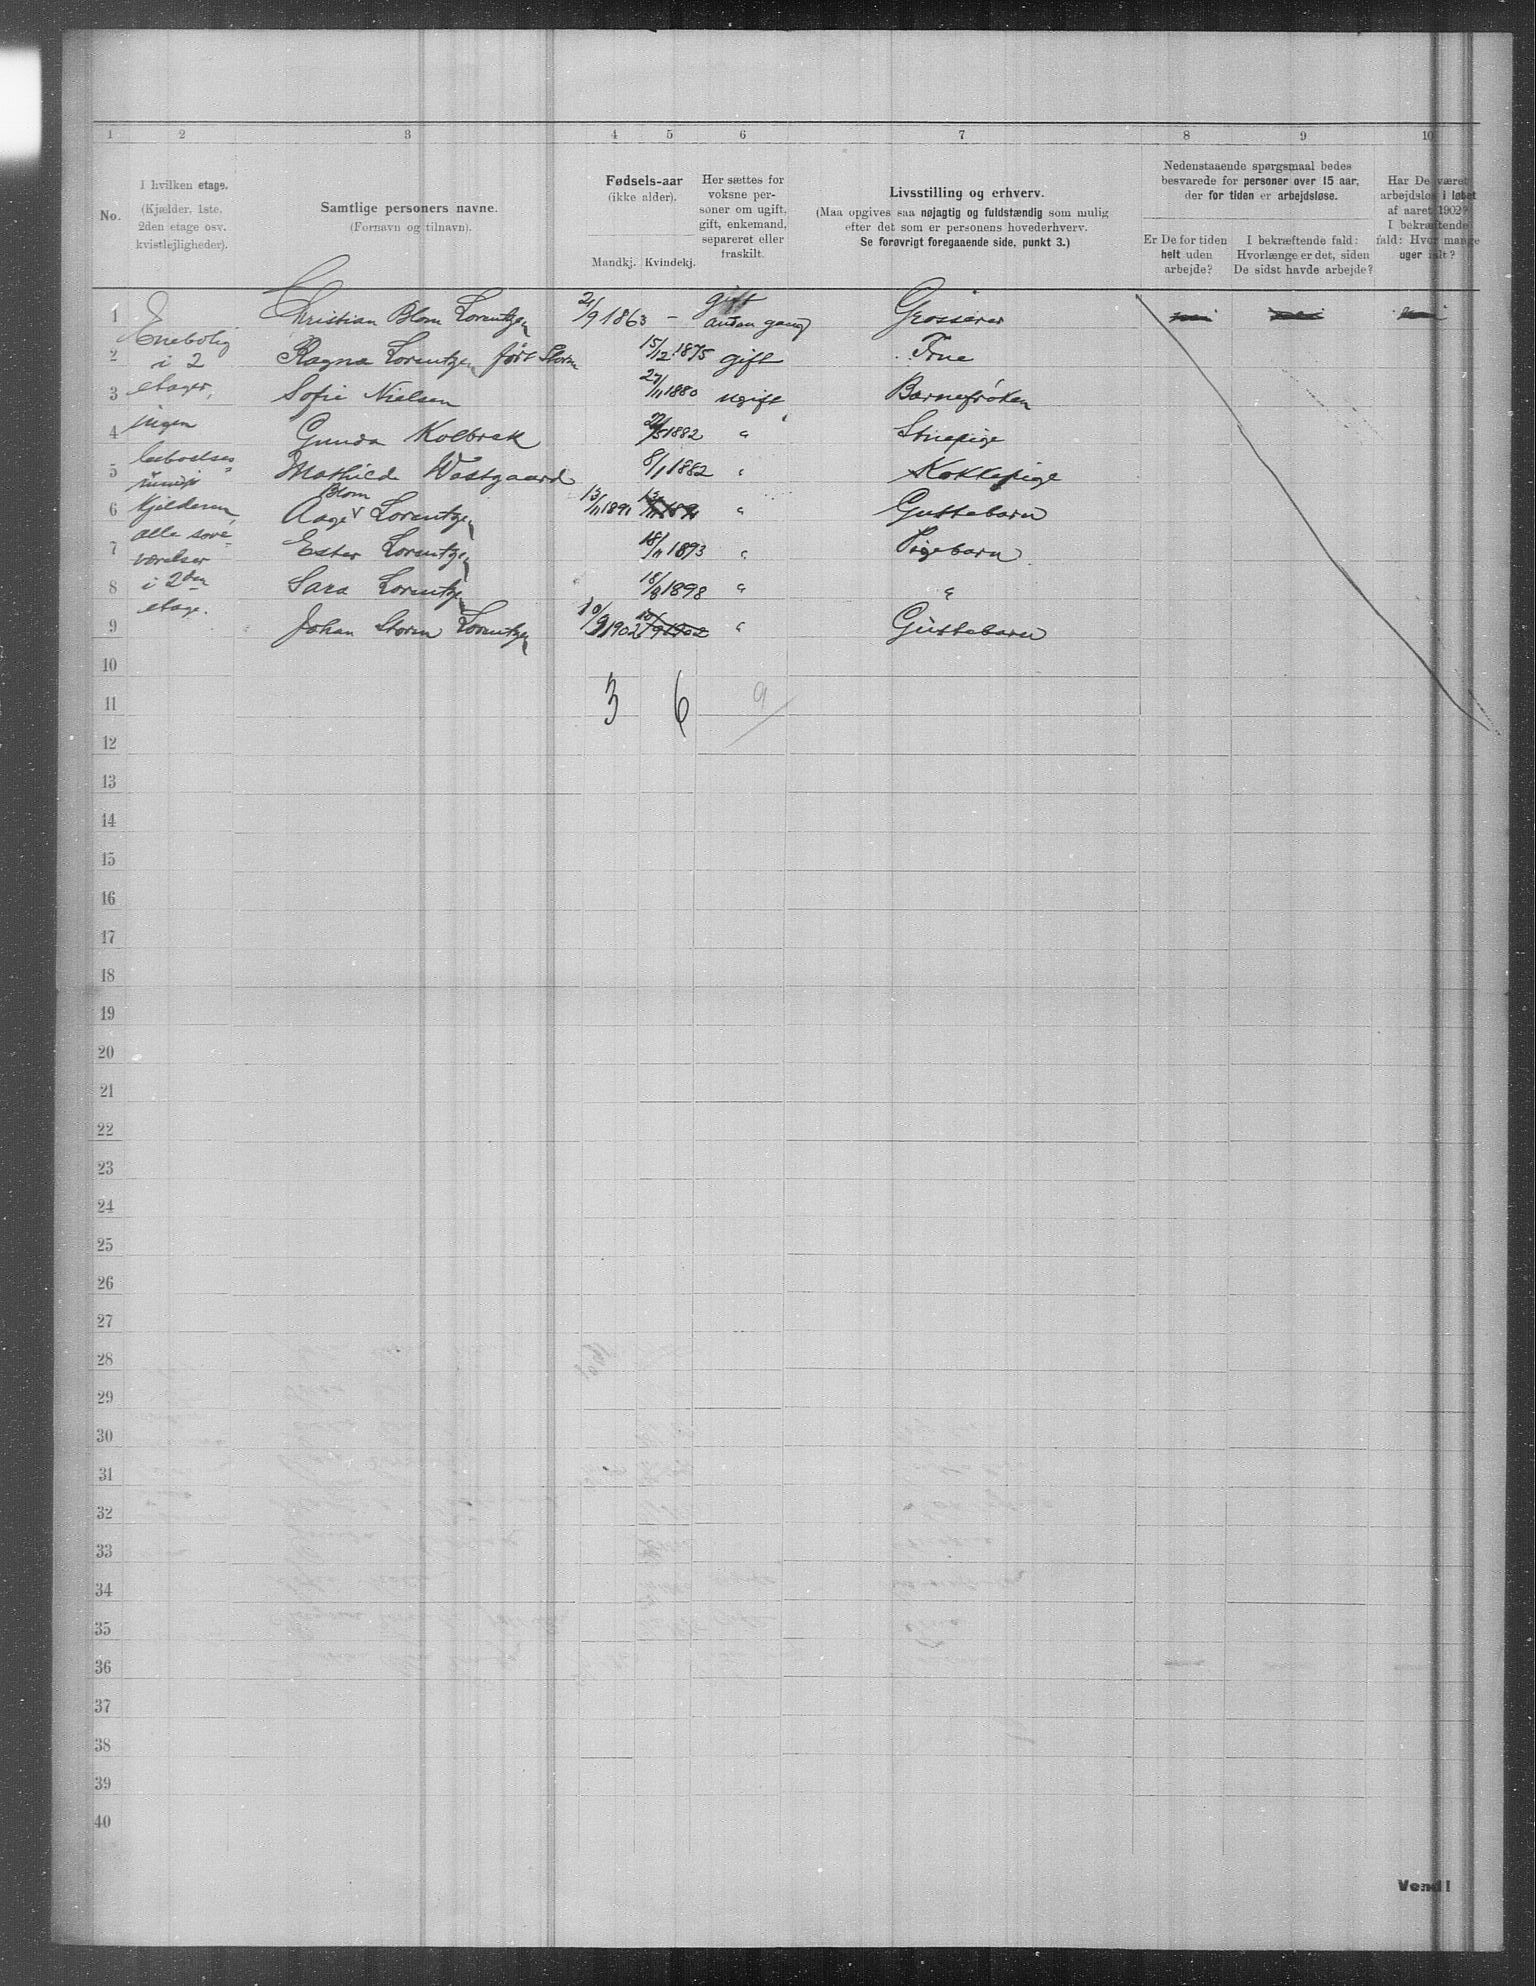 1 2 3 4 5 6 7 8 9 10
No.
I hvilken etage.
(Kjælder, 1ste.
2den etage osv.
kvistlejligheder).
Samtlige personers navne.
(Fornavn og tilnavn).
Fødsels-aar
(ikke alder).
Mandkj. Kvindekj.
Her sættes for
voksne per-
soner om ugift,
gift, enkemand,
separeret eller
fraskilt.
Livsstilling og erhverv.
(Maa opgives saa nøjagtig og fuldstændig som mulig
efter det som er personens hovederhverv.
Se forøvrigt foregaaende side, punkt 3.)
Nedenstaaende spørgsmaal bedes
besvarede for personer over 15 aar,
der for tiden er arbejdsløse.
Er De for tiden
helt uden
arbejde?
I bekræftende fald:
Hvorlænge er det, siden
De sidst havde arbejde?
Har De været
arbejdsløs i løbet
af aaret 1902?
I bekræftende
fald: Hvor mange
uger ialt?
Enebolig
i 2
etager,
ingen
beboelses-
kjelderen,
alle sove-
værelser
i 2den
etage.
1 Christian Blom Lorentzen 21/9 1863 - gift anden gang Grosserer nei nei nei
2 Ragna Lorentzen født Storm 15/12 1875 gift Frue
3 Sofie Nielsen 27/11 1880 ugift Barnefrøken
4 Gunda Kolbrek 22/5 1882 " Stuepige
5 Mathilde Wastgaard 8/1 1882 " Kokkepige
6 Aage Blom Lorentzen 13/11 1891 13/11 1891 " Guttebarn
7 Ester Lorentzen 18/11 1893 " Pigebarn
8 Sara Lorentzen 18/8 1898 " "
9 Johan Storm Lorentzen 10/9 1902 10/9 1902 " Guttebarn
10
11 3 6 9
12
13
14
15
16
17
18
19
20
21
22
23
24
25
26
27
28
29
30
31
32
33
34
35
36
37
38
39
40
Vend!